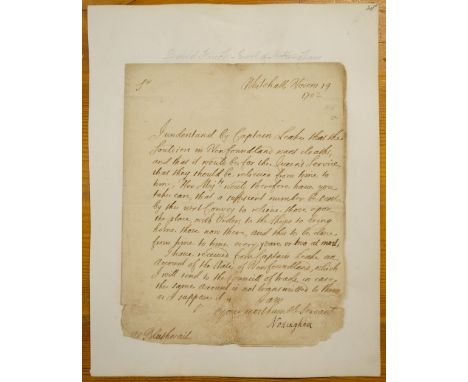 Daniel Finch - Earl of Nottingham
Sr
Whitehall Novem 19
1702
I understand by Captain Leake that the
Souldiers in Newfoundland want cloaths,
and that it would be for the Queen's Service,
that they should be relieved from time to
time, Her Majty would therefore have you
take care, that a sufficient number be sent
by the next Convoy to relieve those upon
the place, with Orders to the Ships to bring
home those now there, and this to be done
from time to time every year, or two at most.
I have received from Captain Leake an
account of the state of Newfoundland, which
I will send to the Committ of trade, in case
the same account is not transmitted to them
as I suppose it is. I am
Your most humble Servant
Nottingham
Mr Blathwait